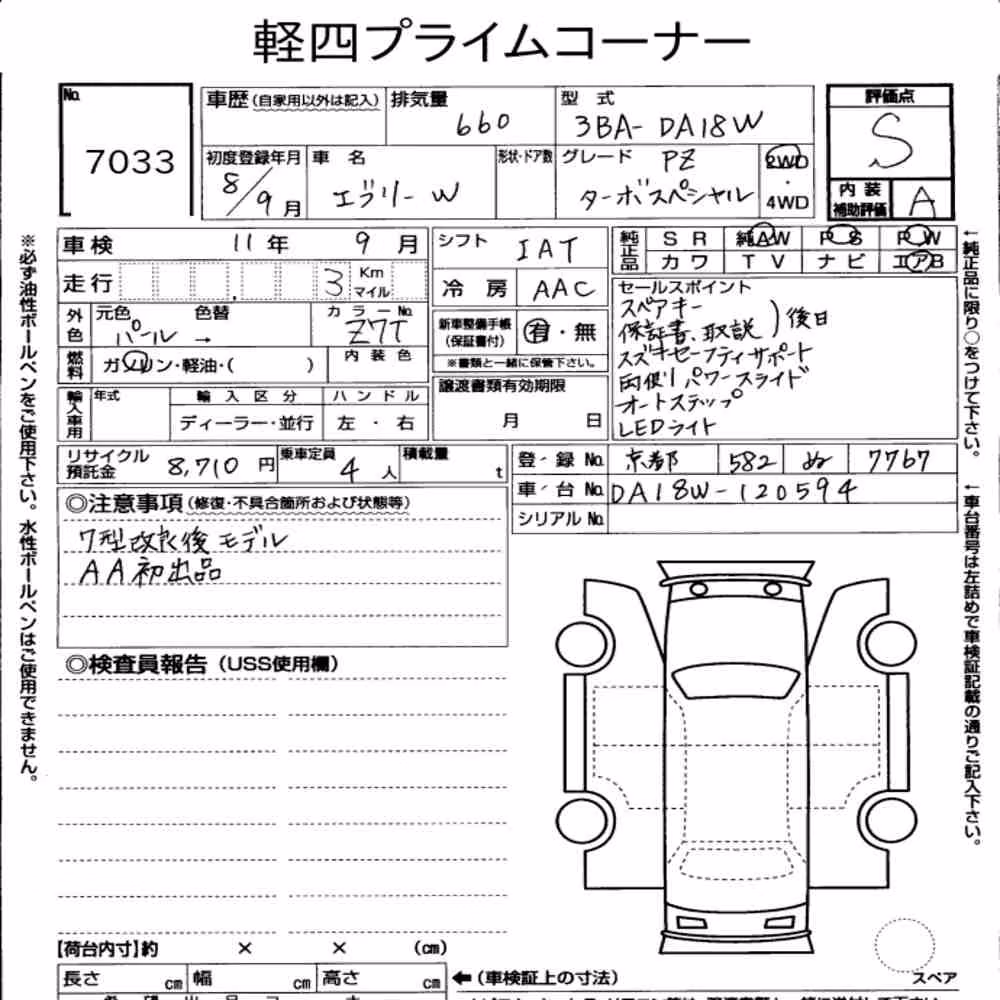 軽四プライムコーナー
No. 7033
車歴(自家用以外は記入)
排気量 660
型 式 3BA-DA18W
評価点 S
初度登録年月 8/9月
車 名 エブリーW
形状・ドア数
グレード PZ ターボスペシャル
2WD・4WD
内装補助評価 A
車検 11年 9月
シフト IAT
純正品 SR 純AW PS PW
カワ TV ナビ エアB
走行 3 Km マイル
冷房 AAC
セールスポイント
スペアキー
保証書、取説 )後日
スズキセーフティサポート
両側パワースライド
オートステップ
LEDライト
外色 元色 パール → 色替
カラーNo. Z7T
新車整備手帳(保証書付) 有・無
※書類と一緒に保管下さい。
燃料 ガソリン・軽油・( )
内装色
譲渡書類有効期限
月 日
輸入車用 年式 輸入区分 ハンドル
ディーラー・並行 左・右
リサイクル預託金 8,710円
乗車定員 4人
積載量 t
登・録No. 京都 582 ぬ 7767
車・台No. DA18W-120594
シリアルNo.
◎注意事項(修復・不具合箇所および状態等)
7型改良後モデル
AA初出品
◎検査員報告(USS使用欄)
【荷台内寸】約 × × (cm)
長さ cm 幅 cm 高さ cm
←(車検証上の寸法)
スペア
※必ず油性ボールペンをご使用下さい。水性ボールペンはご使用できません。
←純正品に限り○をつけて下さい。
←車台番号は左詰めで車検証記載の通りご記入下さい。